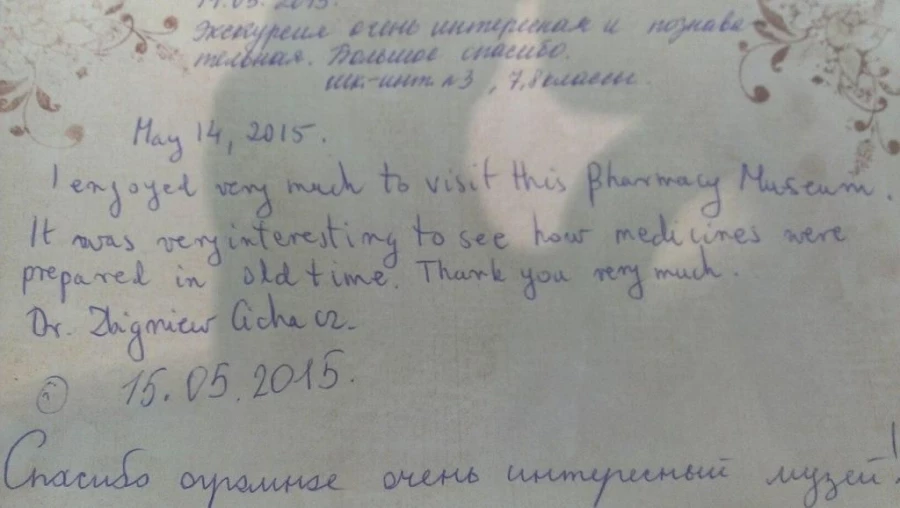 14.05.2015.
Экскурсия очень интересная и познава-
тельная. Большое спасибо.
шк.-инт. №3, 7,8 классы.
May 14, 2015.
I enjoyed very much to visit this Pharmacy Museum.
It was very interesting to see how medicines were
prepared in old time. Thank you very much.
Dr. Zbigniew Cichacz.
15.05.2015.
Спасибо огромное очень интересный музей!